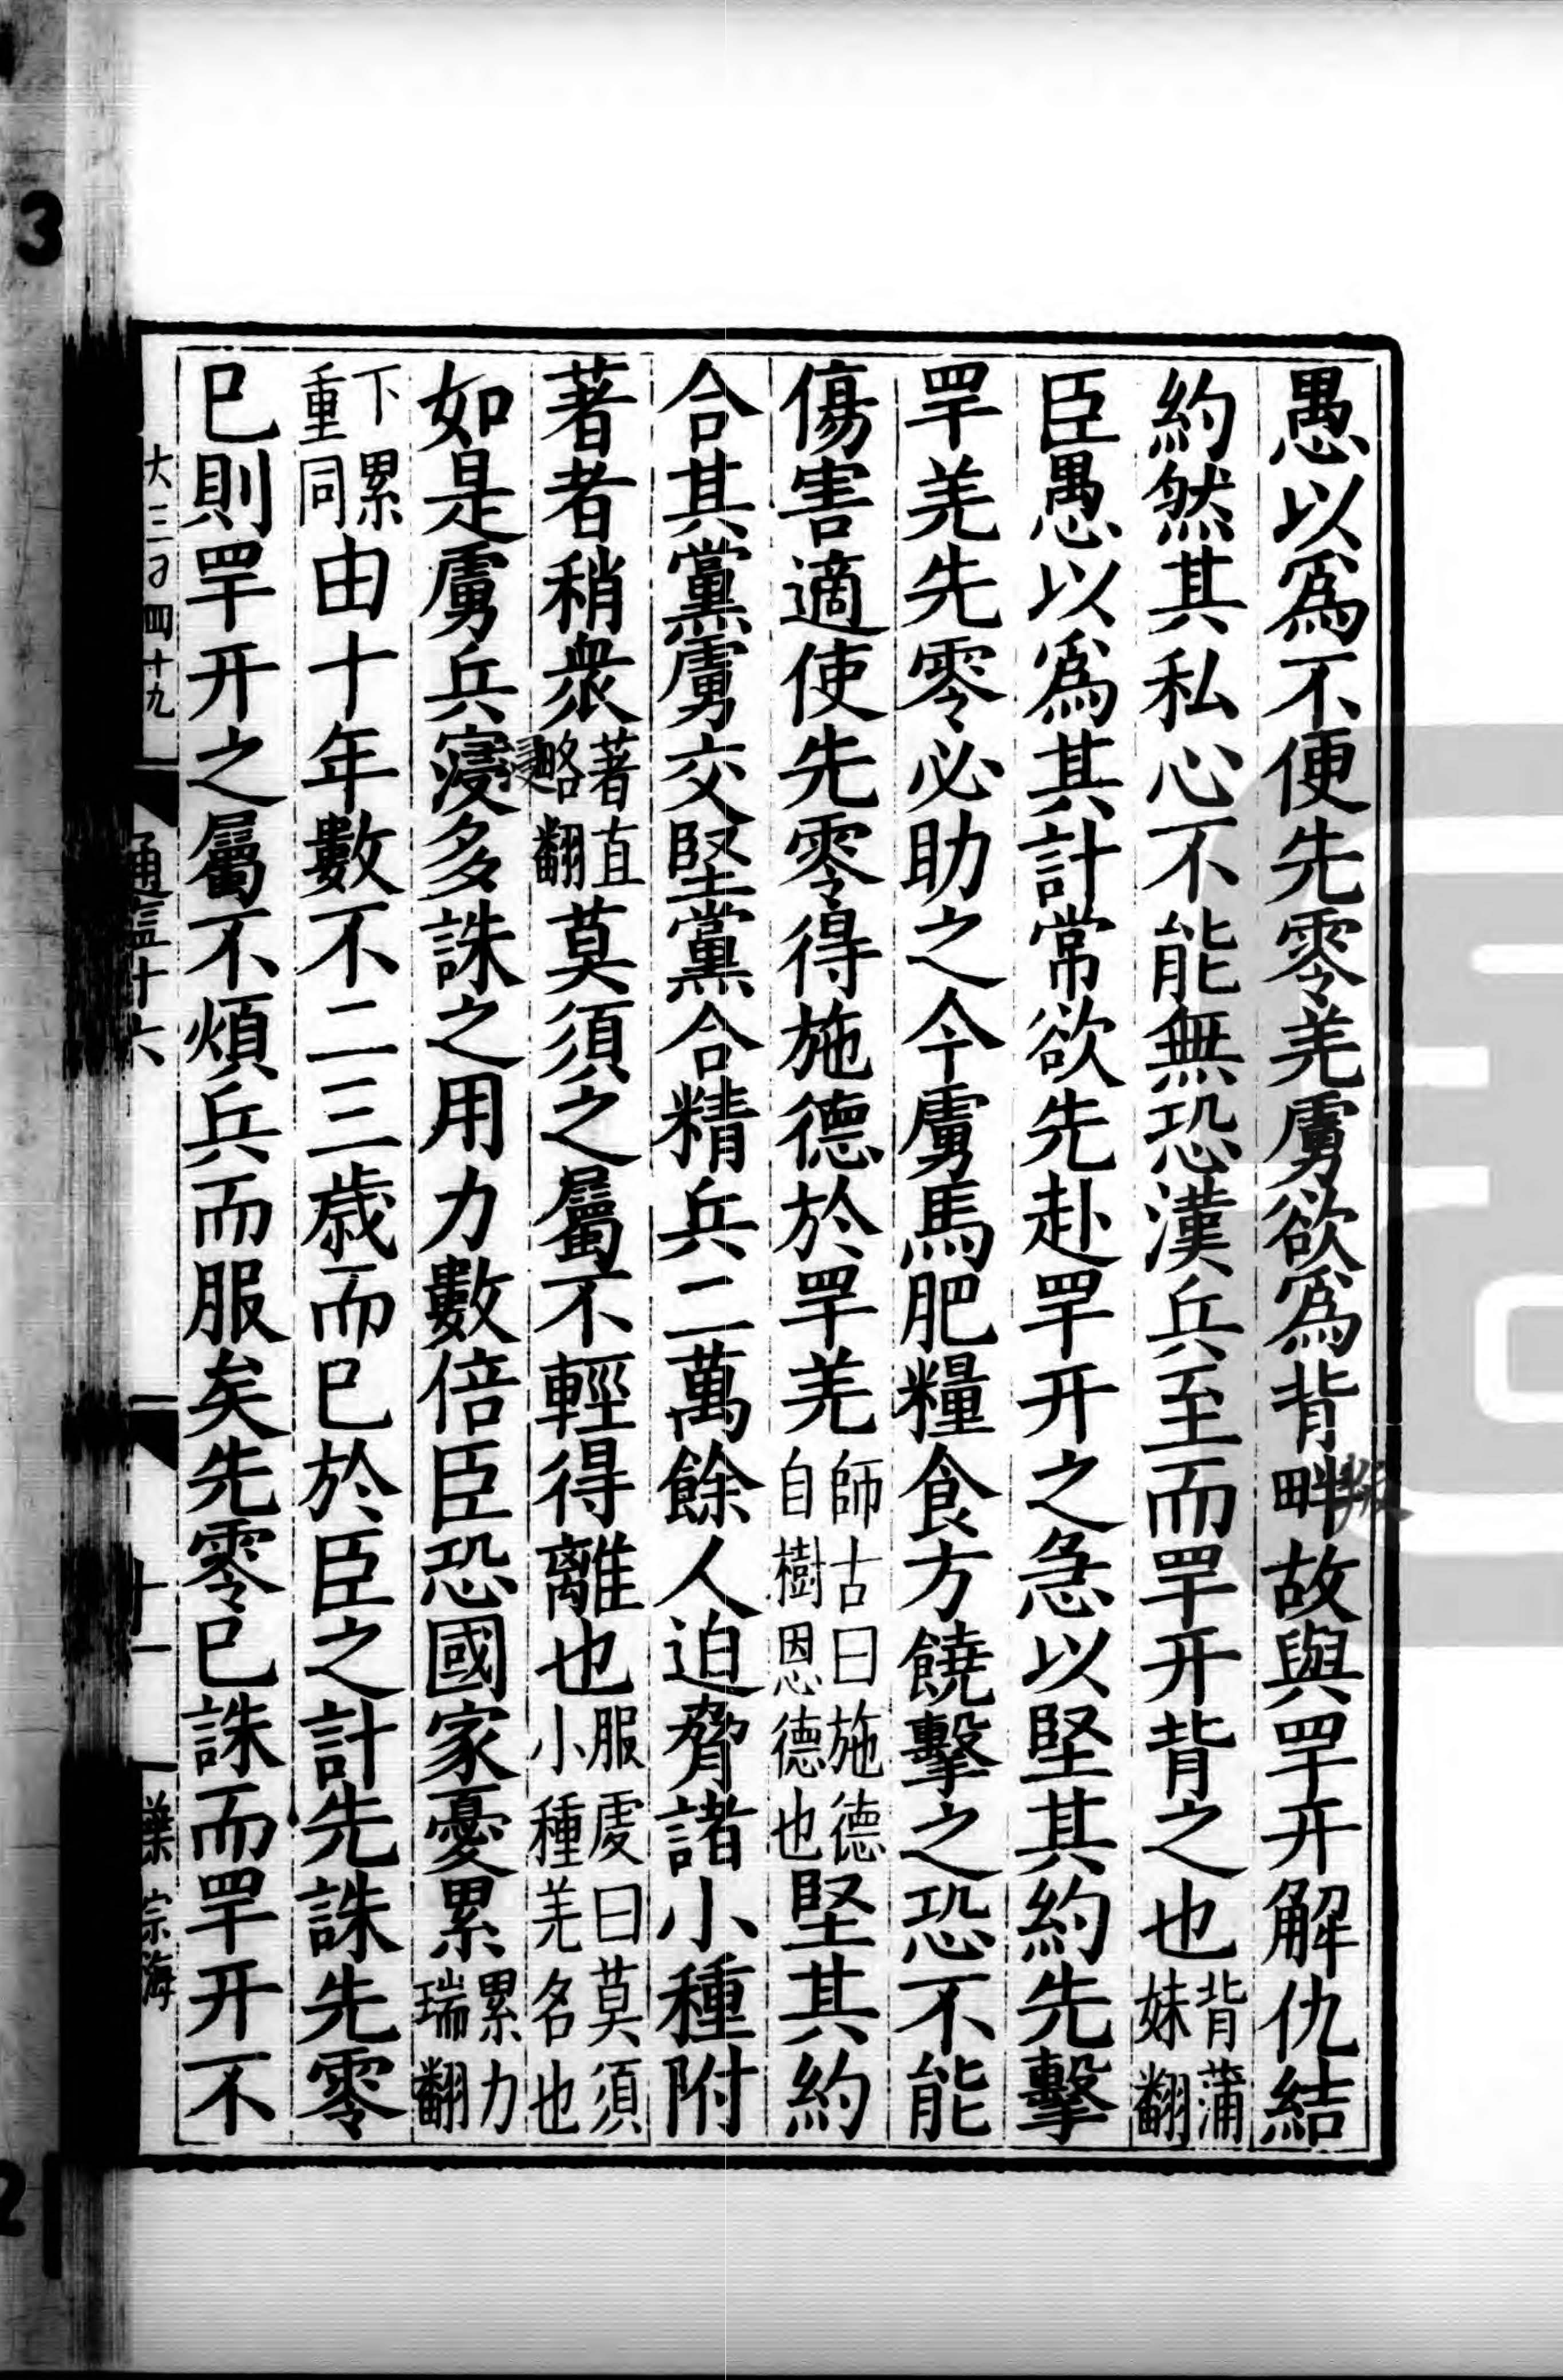 愚以爲不便先零羌虜欲爲背畔故與罕幵解仇結
約然其私心不能無恐漢兵至而罕幵背之也背蒲妹翻
臣愚以爲其計常欲先赴罕幵之急以堅其約先擊
罕羌先零必助之今虜馬肥糧食方饒擊之恐不能
傷害適使先零得施德於罕羌師古曰施德自樹恩德也堅其約
合其黨虜交堅黨合精兵二萬餘人迫脅諸小種附
著者稍衆著直略翻莫須之屬不輕得離也服虔曰莫須小種羌名也
如是虜兵寖多誅之用力數倍臣恐國家憂累累力瑞翻
下累重同由十年數不二三歲而已於臣之計先誅先零
已則罕幵之屬不煩兵而服矣先零已誅而罕幵不
大三百四十九
通鑑十六
十一
葉宗海